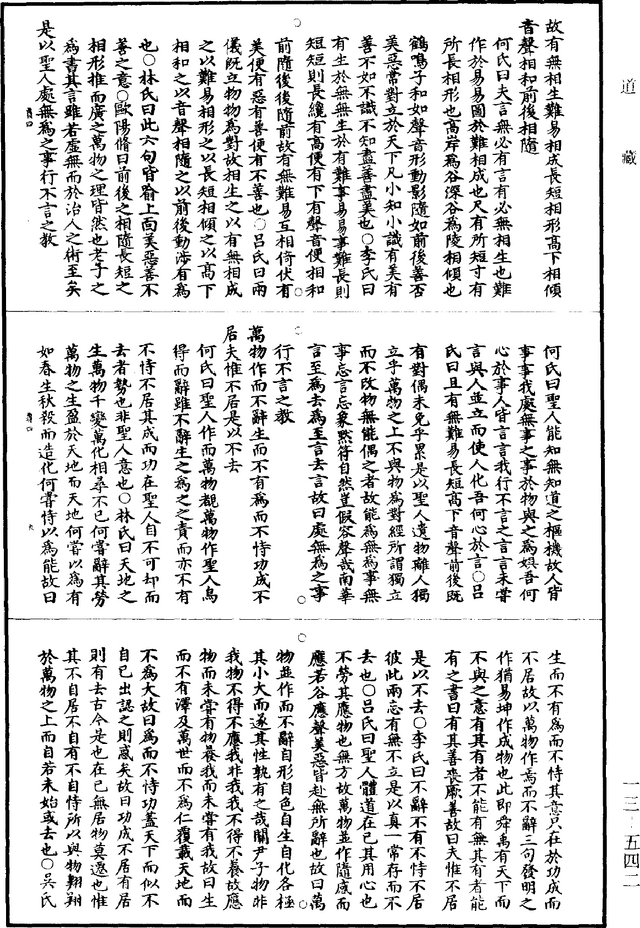 道藏
故有無相生難易相成長短相形高下相傾
音聲相和前後相隨
何氏曰夫言無必有言有必無相生也難
作於易易圖於難相成也尺有所短寸有
所長相形也高岸為谷深谷為陵相傾也
鶴鳴子和如聲音形動影隨如前後善否
美惡當對立於天下凡小知小識有美有
善不如不識不知盡善盡美也○李氏曰
有生於無無生於有難事易易事難長則
短短則長纔有高便有下有聲音便相和
前隨後後隨前故有無難易互相倚伏有
美便有惡有善便有不善也○呂氏曰兩
儀既立物物為對故相生之以有無相成
之以難易相形之以長短相傾之以高下
相和之以音聲相隨之以前後動涉有為
也○林氏曰此六句皆喻上面美惡善不
善之意○歐陽脩曰前後之相隨長短之
相形推而廣之萬物之理皆然也老子之
為書其言雖若虛無而於治人之術至矣
是以聖人處無為之事行不言之教
何氏曰聖人能知無知道之樞機故人皆
事事我處無事之事於物與之為娛吾何
心於事人皆言言我行不言之言言未嘗
言與人並立而使人化吾何心於言○呂
氏曰且有無難易長短高下音聲前後既
有對偶未免乎累是以聖人遺物離人獨
立乎萬物之上不與物為對經所謂獨立
而不改物無能偶之者故能為無為事無
事忘言忘象默符自然豈假容聲哉南華
言至為去為至言去言故曰處無為之事
行不言之教
萬物作而不辭生而不有為而不恃功成不
居夫惟不居是以不去
何氏曰聖人作而萬物覩萬物作聖人烏
得而辭雖不辭生之為之之責而亦不有
不恃不居其成而功在聖人自不可却而
去者勢也非聖人意也○林氏曰天地之
生萬物千變萬化相尋不已何嘗辭其勞
萬物之生盈於天地而天地何嘗以為有
如春生秋殺而造化何嘗恃以為能故曰
生而不有為而不恃其意只在於功成而
不居故以萬物作焉而不辭三句發明之
作猶易坤作成物也此即舜禹有天下而
不與之意有其有者不能有無其有者能
有之書曰有其善喪厥善故曰夫惟不居
是以不去○李氏曰不辭不有不恃不居
彼此兩忘有無不立是以真一常存而不
去也○呂氏曰聖人體道在己其用心也
不勞其應物也無方故萬物並作隨感而
應若谷應聲美惡皆赴無所辭也故曰萬
物並作而不辭自形自色自生自化各極
其小大而遂其性孰有之哉關尹子物非
我物不得不應我非我我不得不養故應
物而未嘗有物養我而未嘗有我故曰生
而不有澤及萬世而不為仁覆載天地而
不為大故曰為而不恃功蓋天下而似不
自己出認之則惑矣故曰功成不居有居
則有去古今是也在己無居物莫遷也惟
其不自居不自有不自恃所以與物翱翔
於萬物之上而自若未始或去也○吳氏
一三-五四二